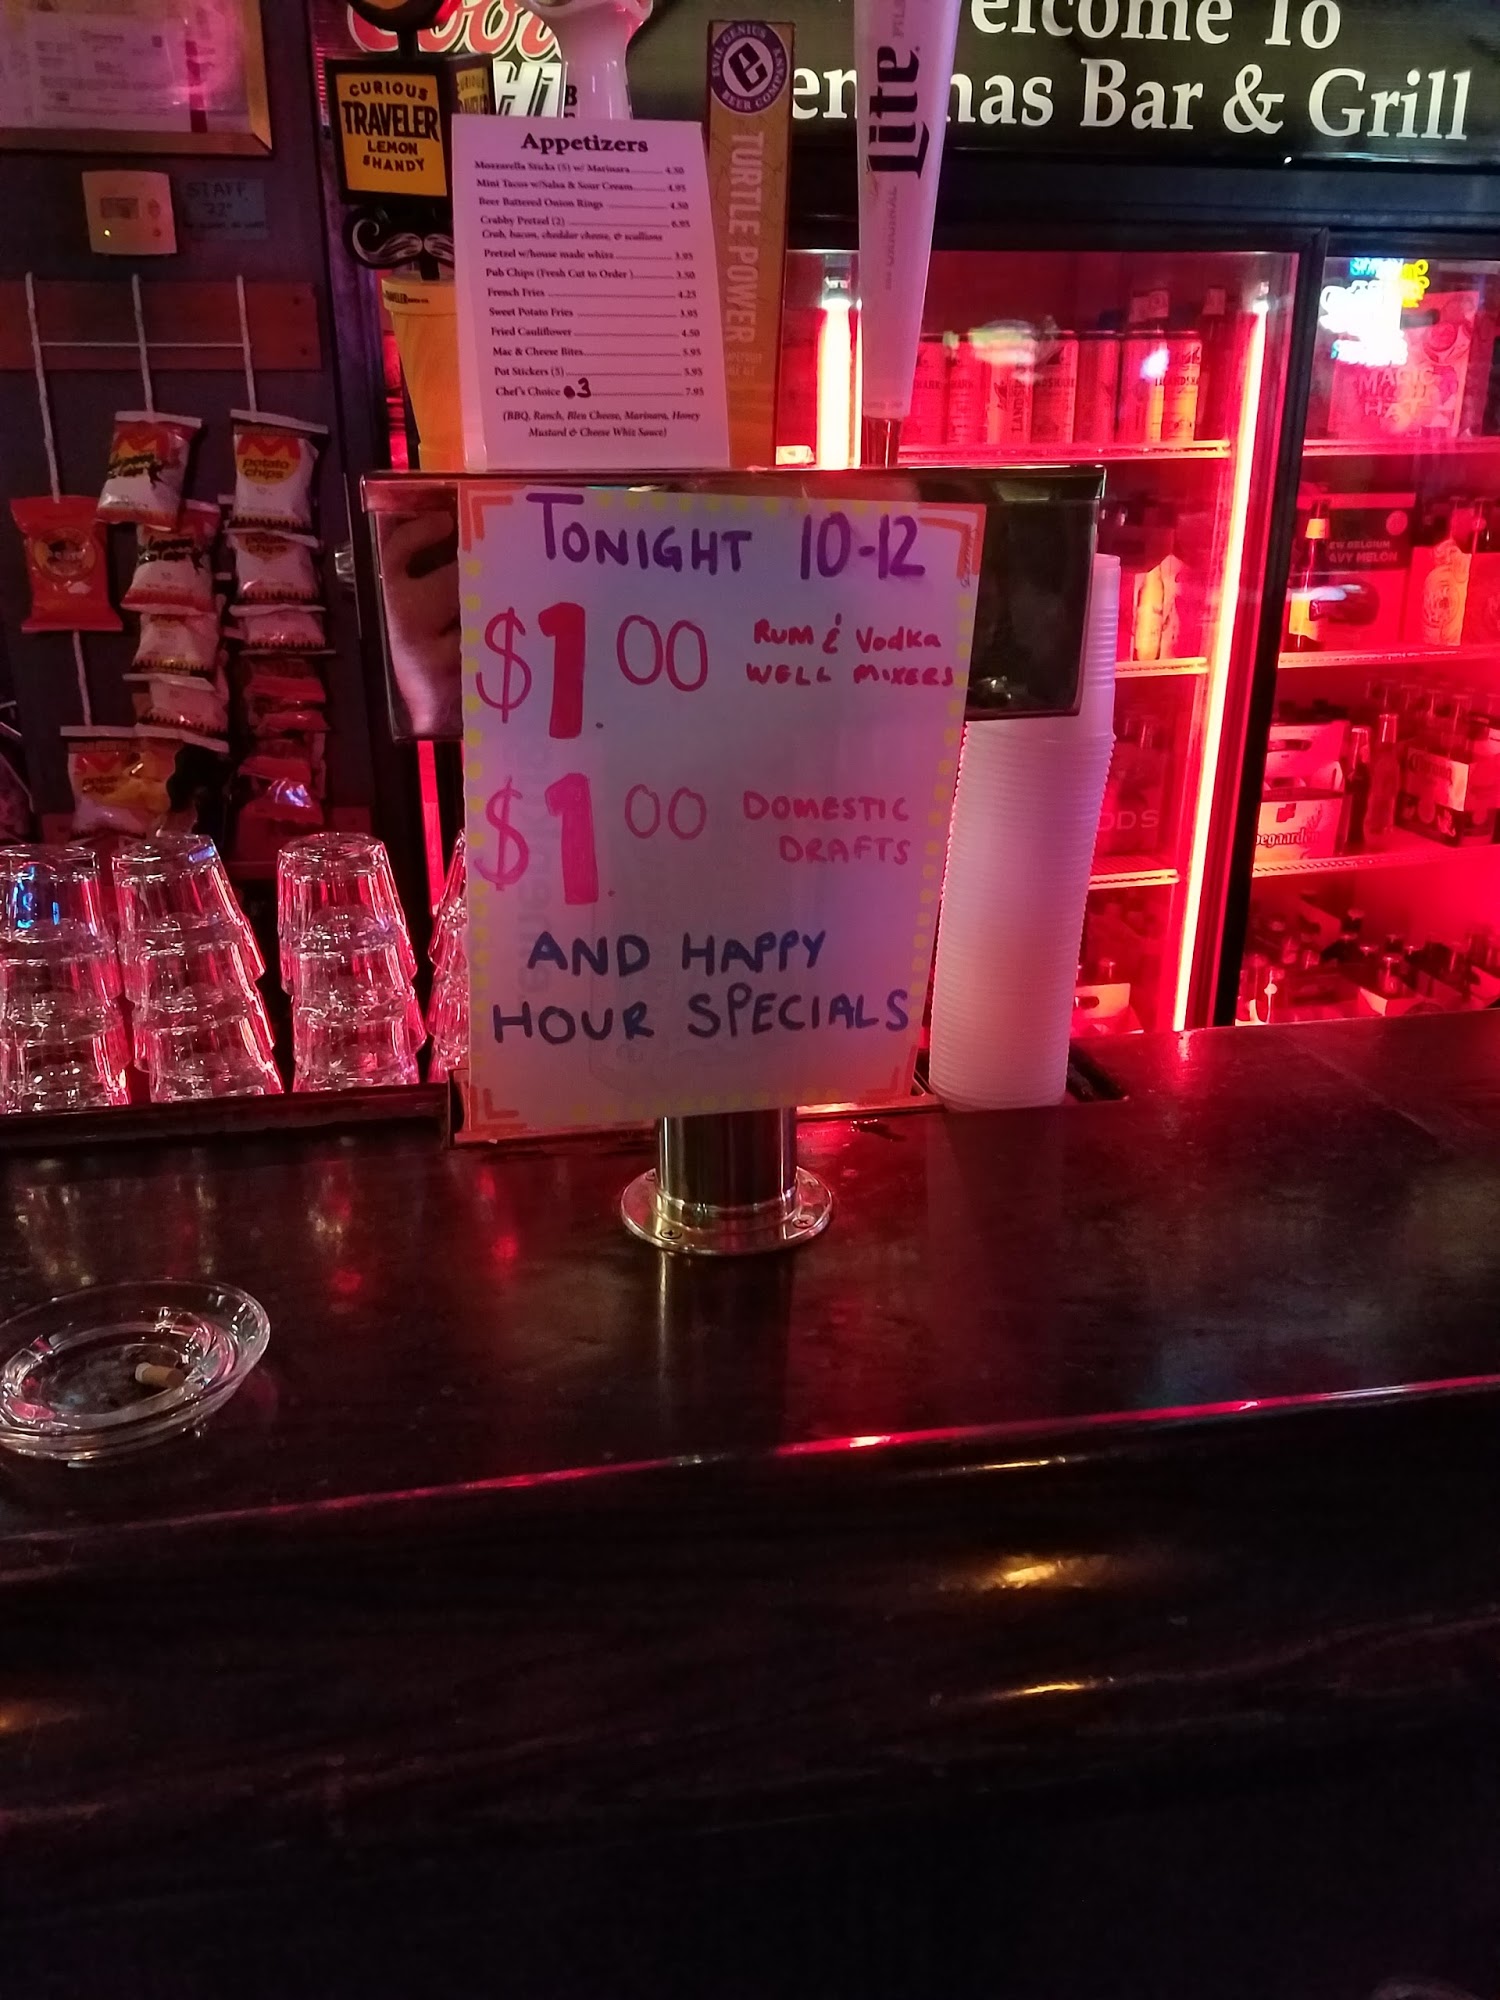 Coors
elcome To
en nas Bar & Grill
CURIOUS
TRAVELER
LEMON
SHANDY
EVIL GENIUS
BEER COMPANY
TURTLE POWER
Lite
PILS
ORIGINAL
STAFF
"22"
Appetizers
Mozzarella Sticks (5) w/ Marinara 4.50
Mini Tacos w/Salsa & Sour Cream 4.95
Beer Battered Onion Rings 4.50
Crabby Pretzel (2) 6.95
Crab, bacon, cheddar cheese, & scallions
Pretzel w/house made whiz 3.95
Pub Chips (Fresh Cut to Order) 3.50
French Fries 4.25
Sweet Potato Fries 3.95
Fried Cauliflower 4.50
Mac & Cheese Bites 5.95
Pot Stickers (5) 5.95
Chef's Choice 3 7.95
(BBQ, Ranch, Bleu Cheese, Marinara, Honey
Mustard & Cheese Whiz Sauce)
potato
chips
MAGIC
HAT
TONIGHT 10-12
$1.00 RUM & Vodka
WELL MIXERS
$1.00 DOMESTIC
DRAFTS
AND HAPPY
HOUR SPECIALS
Corona
egaarden